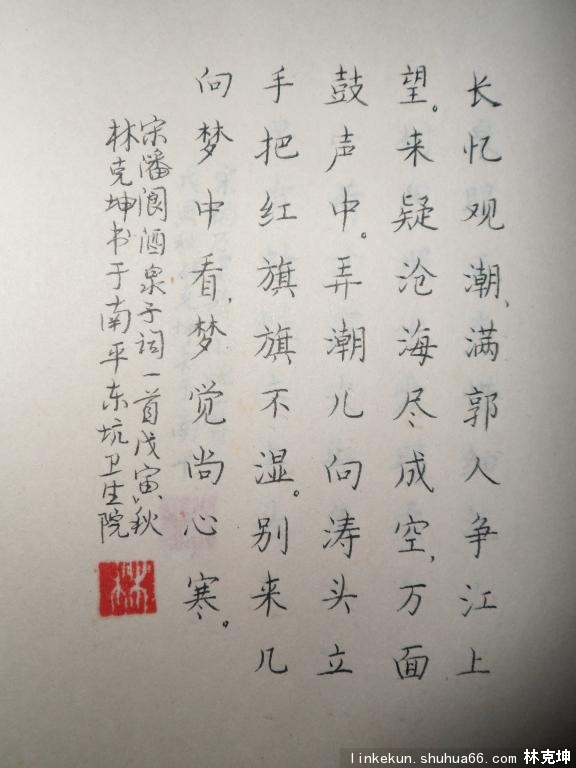 长忆观潮、满郭人争江上
望。来疑沧海尽成空,万面
鼓声中。弄潮儿向涛头立
手把红旗旗不湿。别来几
向梦中看,梦觉尚心寒。
宋潘阆酒泉子词一首戊寅秋
林克坤书于南平东坑卫生院
林
linkekun.shuhua66.com 林克坤